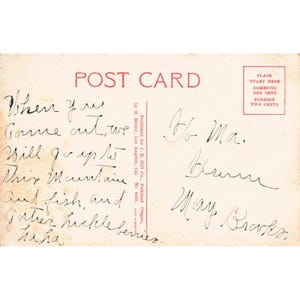 POST CARD
PLACE
STAMP HERE
DOMESTIC
ONE CENT
FOREIGN
TWO CENTS
When you
Come out, we
Will go up to
this Mountain
and fish, and
gather huckleberries.
haha.
Published for J. K. Gill Co., Portland Oregon,
by M. Rieder, Los Angeles, Cal. No.
To Ma.
May Brooks.